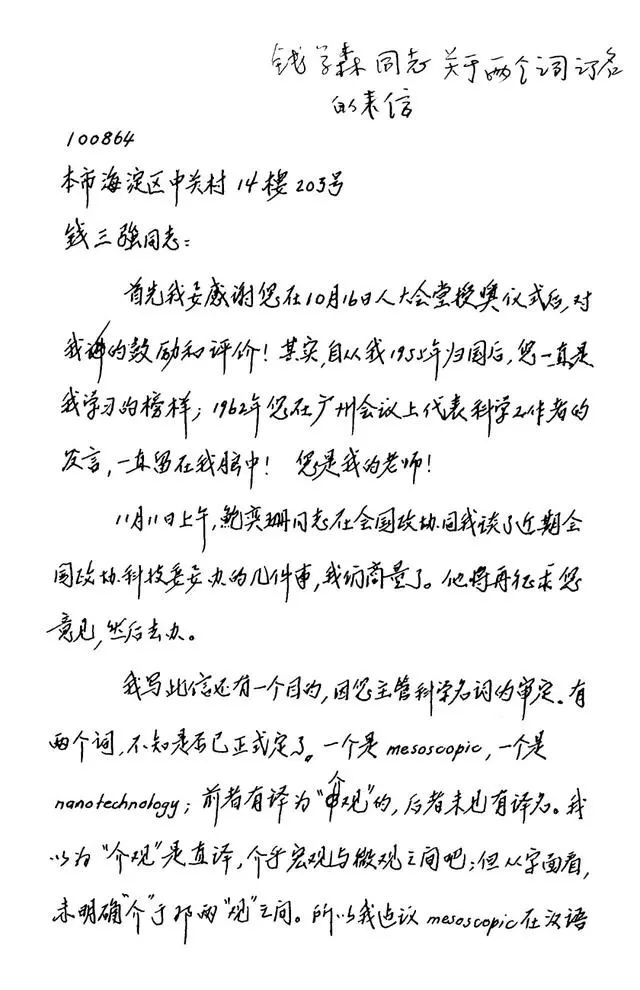 钱学森同志关于两个词订名
的来信
100864
本市海淀区中关村14楼203号
钱三强同志：
首先我要感谢您在10月16日人大会堂授奖仪式后,对
我的鼓励和评价！其实,自从我1955年归国后,您一直是
我学习的榜样；1962年您在广州会议上代表科学工作者的
发言,一直留在我脑中！您是我的老师！
11月11日上午,鲍奕珊同志在全国政协同我谈了近期全
国政协科技委要办的几件事,我们商量了。他将再征求您
意见,然后去办。
我写此信还有一个目的,因您主管科学名词的审定。有
两个词,不知是否已正式定了。一个是mesoscopic,一个是
nanotechnology；前者有译为“介观”的,后者未也有译名。我
以为“介观”是直译,介乎宏观与微观之间吧；但从字面看,
未明确“介”于那两“观”之间。所以我建议mesoscopic在汉语